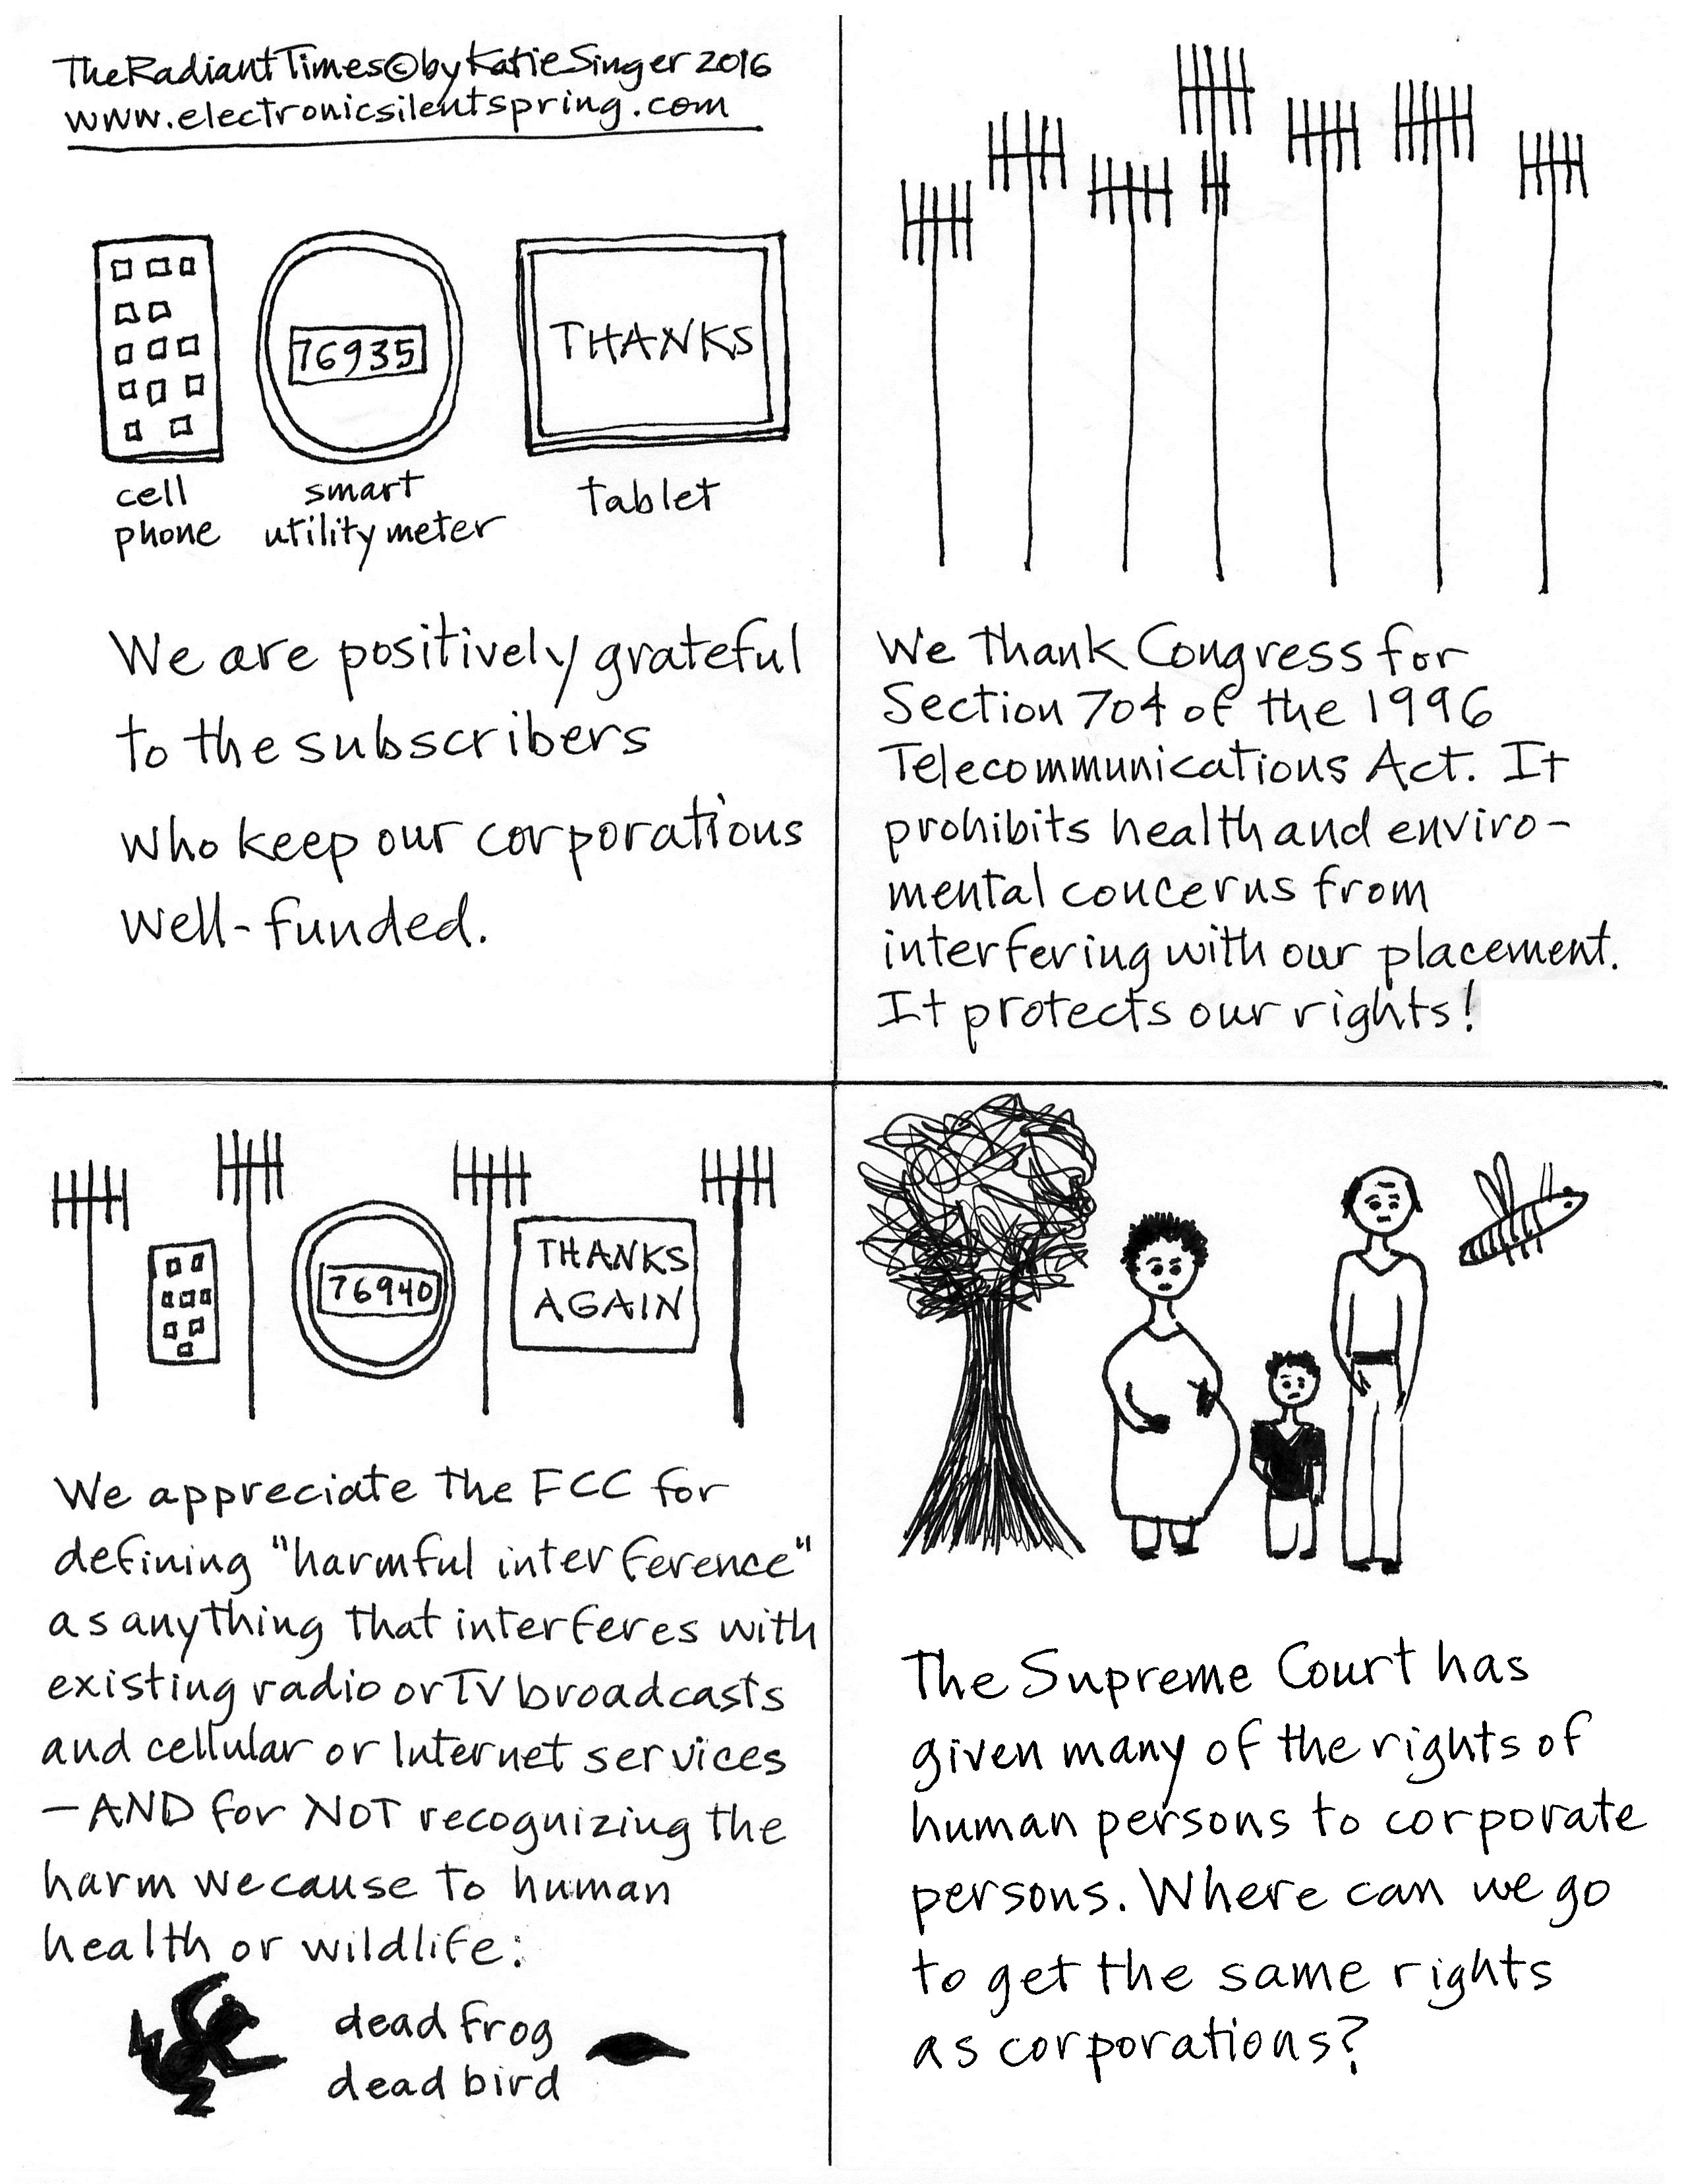 The Radiant Times © by Katie Singer 2016
www.electronicsilentspring.com
76935
THANKS
cell
phone
smart
utility meter
tablet
We are positively grateful
to the subscribers
who keep our corporations
well-funded.
We thank Congress for
Section 704 of the 1996
Telecommunications Act. It
prohibits health and enviro-
mental concerns from
interfering with our placement.
It protects our rights!
76940
THANKS
AGAIN
We appreciate the FCC for
defining "harmful interference"
as anything that interferes with
existing radio or TV broadcasts
and cellular or Internet services
—AND for NOT recognizing the
harm we cause to human
health or wildlife:
dead frog
dead bird
The Supreme Court has
given many of the rights of
human persons to corporate
persons. Where can we go
to get the same rights
as corporations?